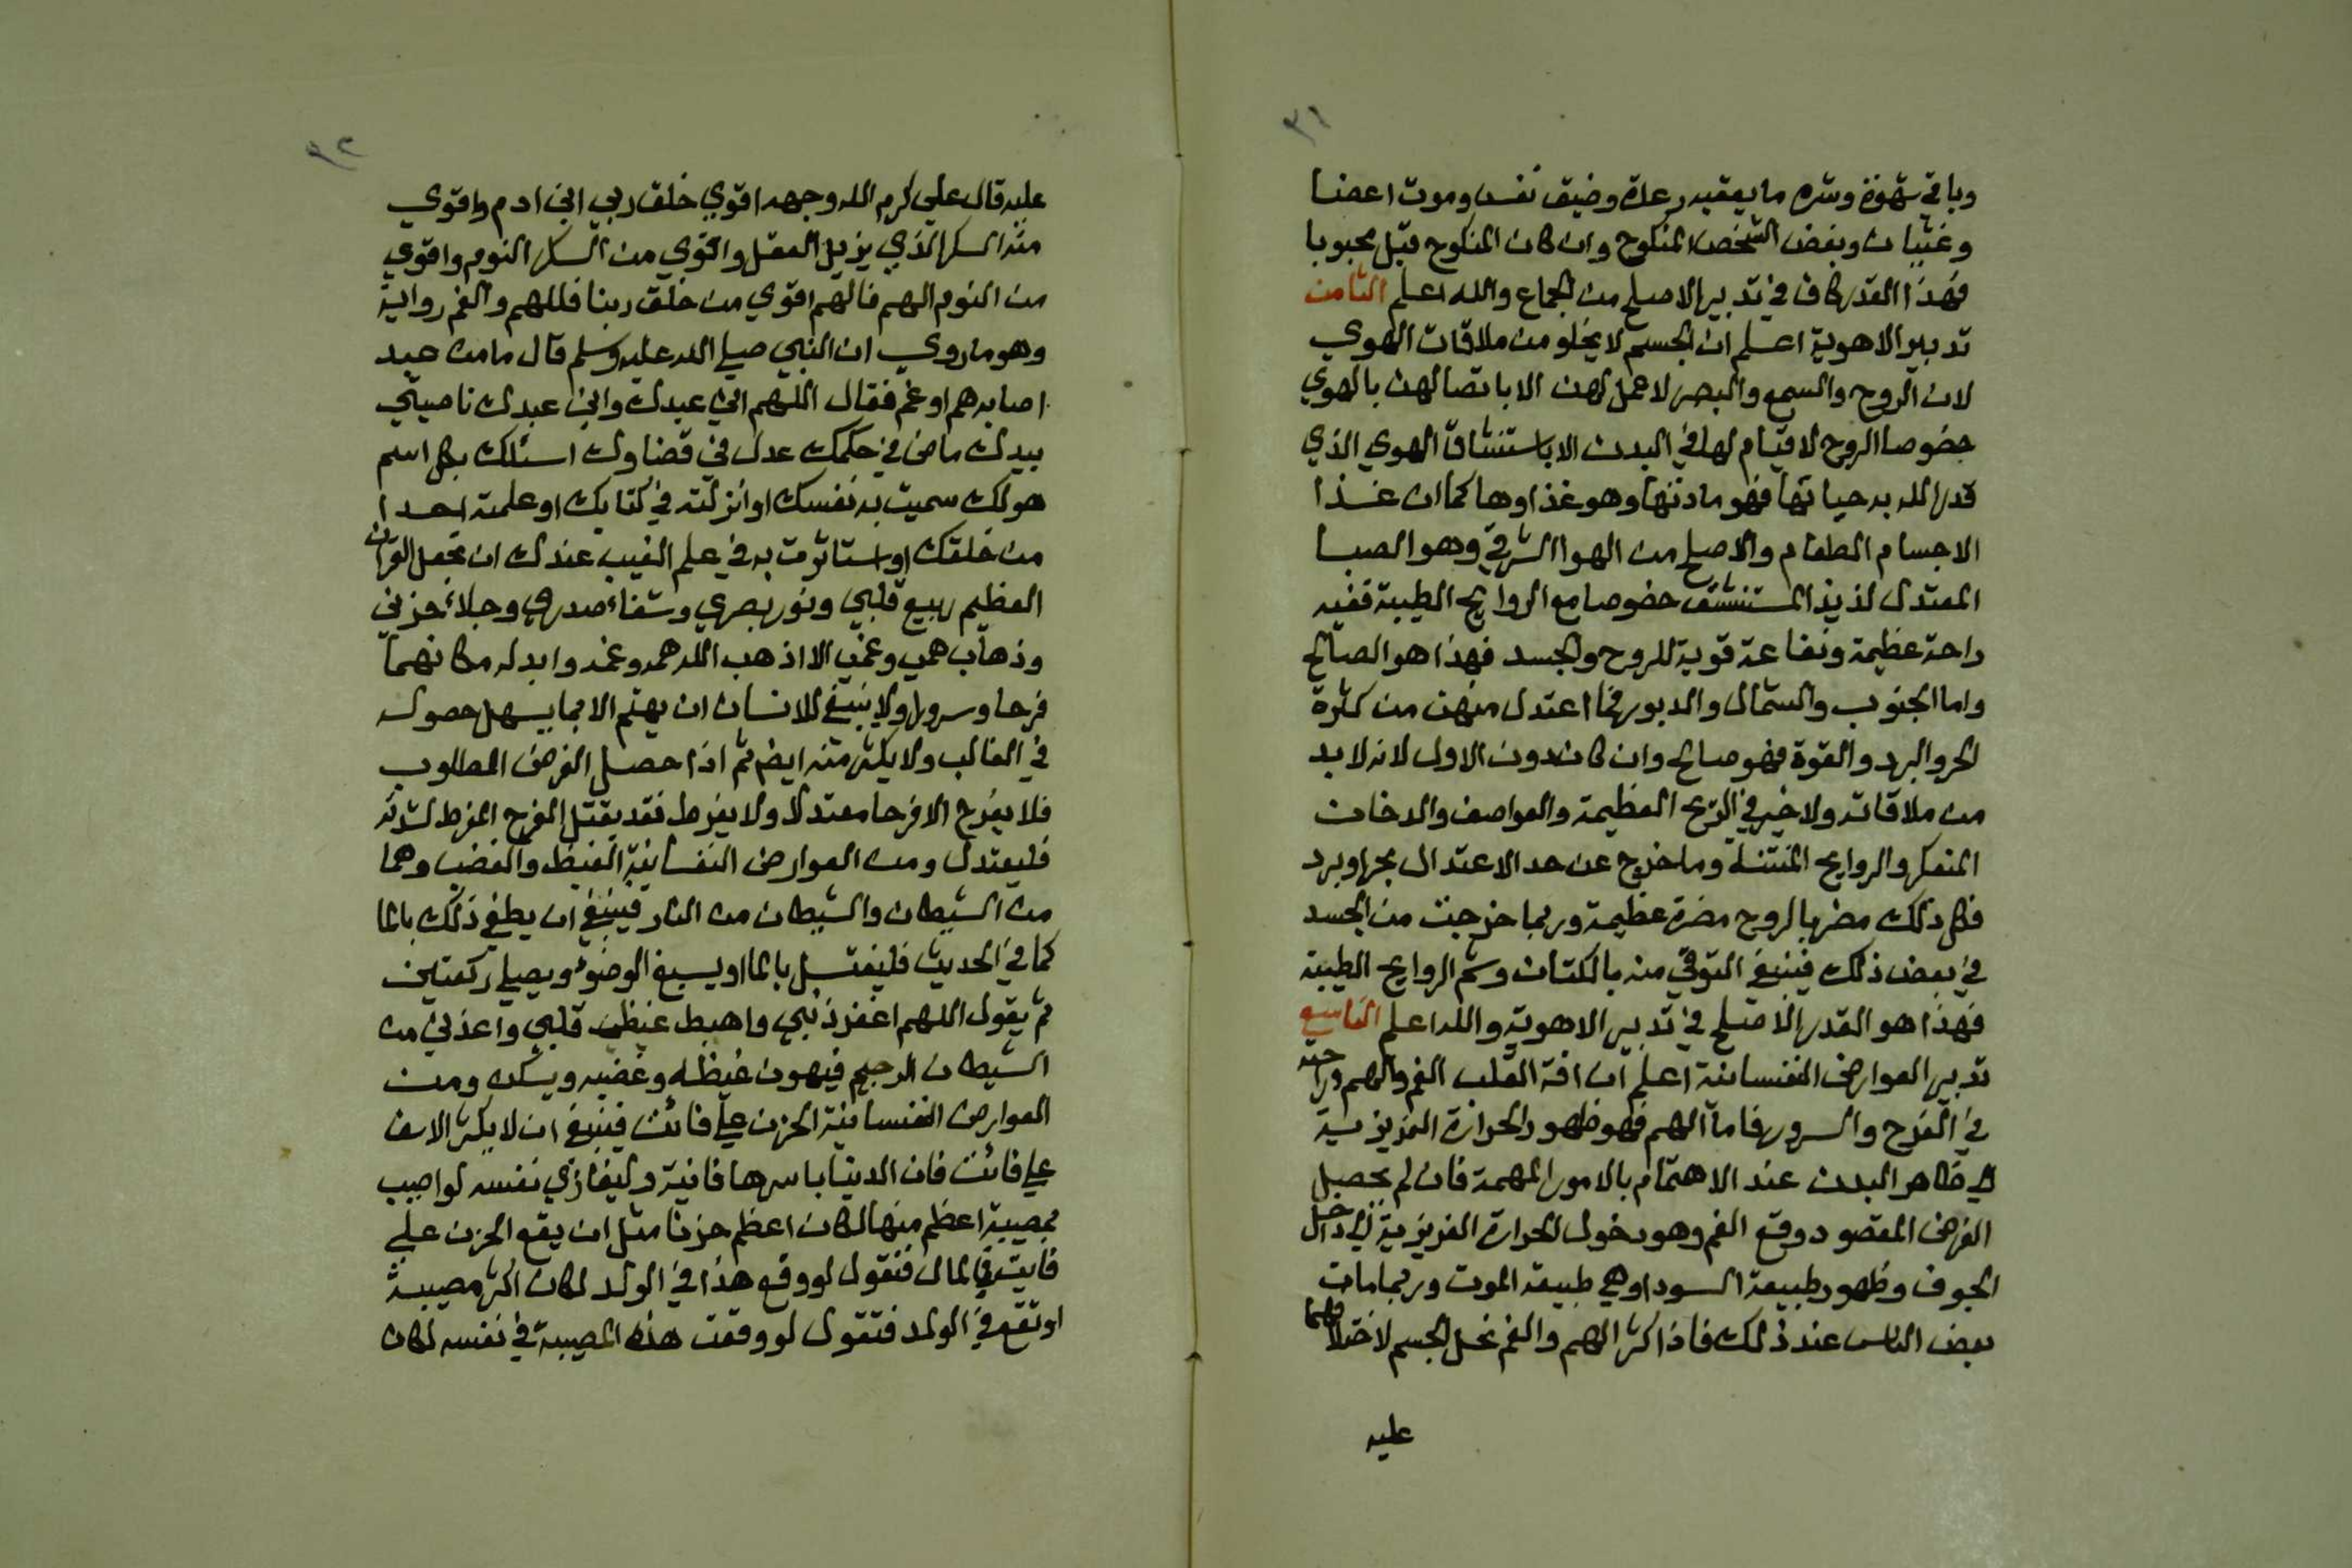 ٣١
وباقي شهوة وشره ما يعقبه رعدة وضيق نفس وموت اعضا
وغثيان وبغض الشخص المنكوح وان كان المنكوح قبل محبوبا
فهذا القدر كاف في تدبير الاصلح من الجماع والله اعلم الثامن
تدبير الاهوية اعلم ان الجسم لا يخلو من ملاقات الهوي
لان الروح والسمع والبصر لا عمل لهن الا باتصالهن بالهوي
خصوصا الروح لا قيام لها في البدن الا باستنشاق الهوي الذي
قدر الله به حياتها فهو مادتها وهو غذاوها كما ان غذا
الاجسام الطعام والاصلح من الهوا الشرقي وهو الصبا
المعتدل لذيذ المستنشق خصوصا مع الروايح الطيبة ففيه
راحة عظيمة ونفاعة قوية للروح والجسد فهذا هو الصالح
واما الجنوب والشمال والدبور فما اعتدل منهن من كثرة
الحر والبرد والقوة فهو صالح وان كان دون الاول لانه لا بد
من ملاقاته ولا خير في الريح العظيمة والعواصف والدخان
المتعكر والروايح المنتنة وما خرج عن حد الاعتدال بحر او برد
فكل ذلك مضر بالروح مضرة عظيمة وربما خرجت من الجسد
في بعض ذلك فينبغي التوقي منه بالكتان وشم الروايح الطيبة
فهذا هو القدر الاصلح في تدبير الاهوية والله اعلم التاسع
تدبير العوارض النفسانية اعلم ان افة القلب الغم والهم وراحته
في الفرح والسرور فاما الهم فهو ظهور الحرارة الغريزية
الي ظاهر البدن عند الاهتمام بالامور المهمة فان لم يحصل
الغرض المقصود وقع الغم وهو دخول الحرارة الغريزية الي داخل
الجوف وظهور طبيعة السودا وهي طبيعة الموت وربما مات
بعض الناس عند ذلك فاذا كثر الهم والغم نحل الجسم لاختلافهما
عليه
٣٢
عليه قال علي كرم الله وجهه اقوي خلق ربي ابن ادم واقوي
منه السكر الذي يزيل العقل واقوي من السكر النوم واقوي
من النوم الهم فالهم اقوي من خلق ربنا فللهم والغم رواية
وهو ما روي ان النبي صلي الله عليه وسلم قال ما من عبد
اصابه هم او غم فقال اللهم اني عبدك وابن عبدك ناصيتي
بيدك ماض في حكمك عدل في قضاوك اسئلك بكل اسم
هو لك سميت به نفسك او انزلته في كتابك او علمته احدا
من خلقك او استاثرت به في علم الغيب عندك ان تجعل القران
العظيم ربيع قلبي ونور بصري وشفاء صدري وجلاء حزني
وذهاب همي وغمي الا اذهب الله همه وغمه وابدله مكانهما
فرحا وسرورا ولا ينبغي للانسان ان يهتم الا بما يسهل حصوله
في الغالب ولا يكثر منه ايضا ثم اذا حصل الغرض المطلوب
فلا يفرح الا فرحا معتدلا ولا يفرط فقد يقتل الفرح المفرط لشدته
فليعتدل ومن العوارض النفسانية الغيظ والغضب وهما
من الشيطان والشيطان من النار فينبغي ان يطفي ذلك بالما
كما في الحديث فليغتسل بالما او يسبغ الوضوء ويصلي ركعتين
ثم يقول اللهم اغفر ذنبي واهبط غيظ قلبي واعذني من
الشيطان الرجيم فيهون غيظه وغضبه ويسكن ومن
العوارض النفسانية الحزن علي فائت فينبغي ان لا يكثر الاسف
علي فائت فان الدنيا باسرها فانية وليغازي نفسه لو اصيب
بمصيبة اعظم منها لكان اعظم حزنا مثل ان يقع الحزن علي
فايت في المال فتقول لو وقع هذا في الولد لكان اكثر مصيبة
او تقع في الولد فتقول لو وقعت هذه المصيبة في نفسه لكان